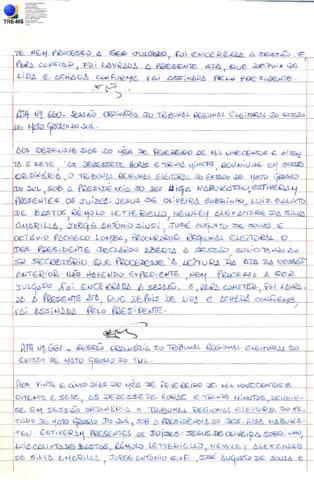 TRE-MS
TE NEM PROCESSO A SER JULGADO, FOI ENCERRADA A SESSÃO. E,
PARA CONSTAR, FOI LAVRADA A PRESENTE ATA, QUE DEPOIS DE
LIDA E ACHADA CONFORME VAI ASSINADA PELO PRESIDENTE.
ATA Nº 660 - SESSÃO ORDINÁRIA DO TRIBUNAL REGIONAL ELEITORAL DO ESTADO
DE MATO GROSSO DO SUL.
AOS DEZENOVE DIAS DO MÊS DE FEVEREIRO DE MIL NOVECENTOS E OITEN
TA E SETE, ÀS DEZESSETE HORAS E TRINTA MINUTOS, REUNIU-SE EM SESSÃO
ORDINÁRIA, O TRIBUNAL REGIONAL ELEITORAL DO ESTADO DE MATO GROSSO
DO SUL, SOB A PRESIDÊNCIA DO DES. HIGA NABUKATSU, ESTIVERAM
PRESENTES OS JUÍZES: JESUS DE OLIVEIRA SOBRINHO, LUIZ CALIXTO
DE BASTOS, RÊMOLO LETTERIELLO, NEWLEY ALEXANDRE DA SILVA
AMARILLA, JORGE ANTONIO SIUFI, JOSÉ AUGUSTO DE SOUZA E
OCTÁVIO PACHECO LOMBA, PROCURADOR REGIONAL ELEITORAL. O
DES. PRESIDENTE DECLAROU ABERTA A SESSÃO SOLICITANDO AO
SR SECRETÁRIO QUE PROCEDESSE A LEITURA DA ATA DA SESSÃO
ANTERIOR. NÃO HAVENDO EXPEDIENTE, NEM PROCESSO A SER
JULGADO, FOI ENCERRADA A SESSÃO. E, PARA CONSTAR, FOI LAVRA
DA A PRESENTE ATA, QUE DEPOIS DE LIDA E ACHADA CONFORME,
VAI ASSINADA PELO PRESIDENTE.
ATA Nº 661 - SESSÃO ORDINÁRIA DO TRIBUNAL REGIONAL ELEITORAL DO
ESTADO DE MATO GROSSO DO SUL.
AOS VINTE E CINCO DIAS DO MÊS DE FEVEREIRO DE MIL NOVECENTOS E
OITENTA E SETE, ÀS DEZESSETE HORAS E TRINTA MINUTOS, REUNIU-
SE EM SESSÃO ORDINÁRIA O TRIBUNAL REGIONAL ELEITORAL DO ES-
TADO DE MATO GROSSO DO SUL, SOB A PRESIDÊNCIA DO DES. HIGA NABUKA-
TSU. ESTIVERAM PRESENTES OS JUÍZES: JESUS DE OLIVEIRA SOBRINHO,
LUIZ CALIXTO DE BASTOS, RÊMOLO LETTERIELLO, NEWLEY ALEXANDRE
DA SILVA AMARILLA, JORGE ANTONIO SIUFI, JOSÉ AUGUSTO DE SOUZA E